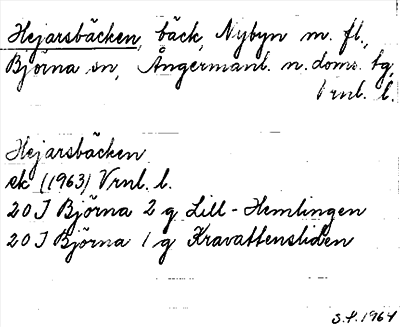 Hejarsbäcken, bäck, Nybyn m. fl.,
Björna sn, Ångermanl. n. doms. tg,
Vrnl. l.
Hejarsbäcken
ek (1963) Vrnl. l.
20 J Björna 2 g Lill-Hemlingen
20 J Björna 1 g Kravattensliden
S.F. 1964